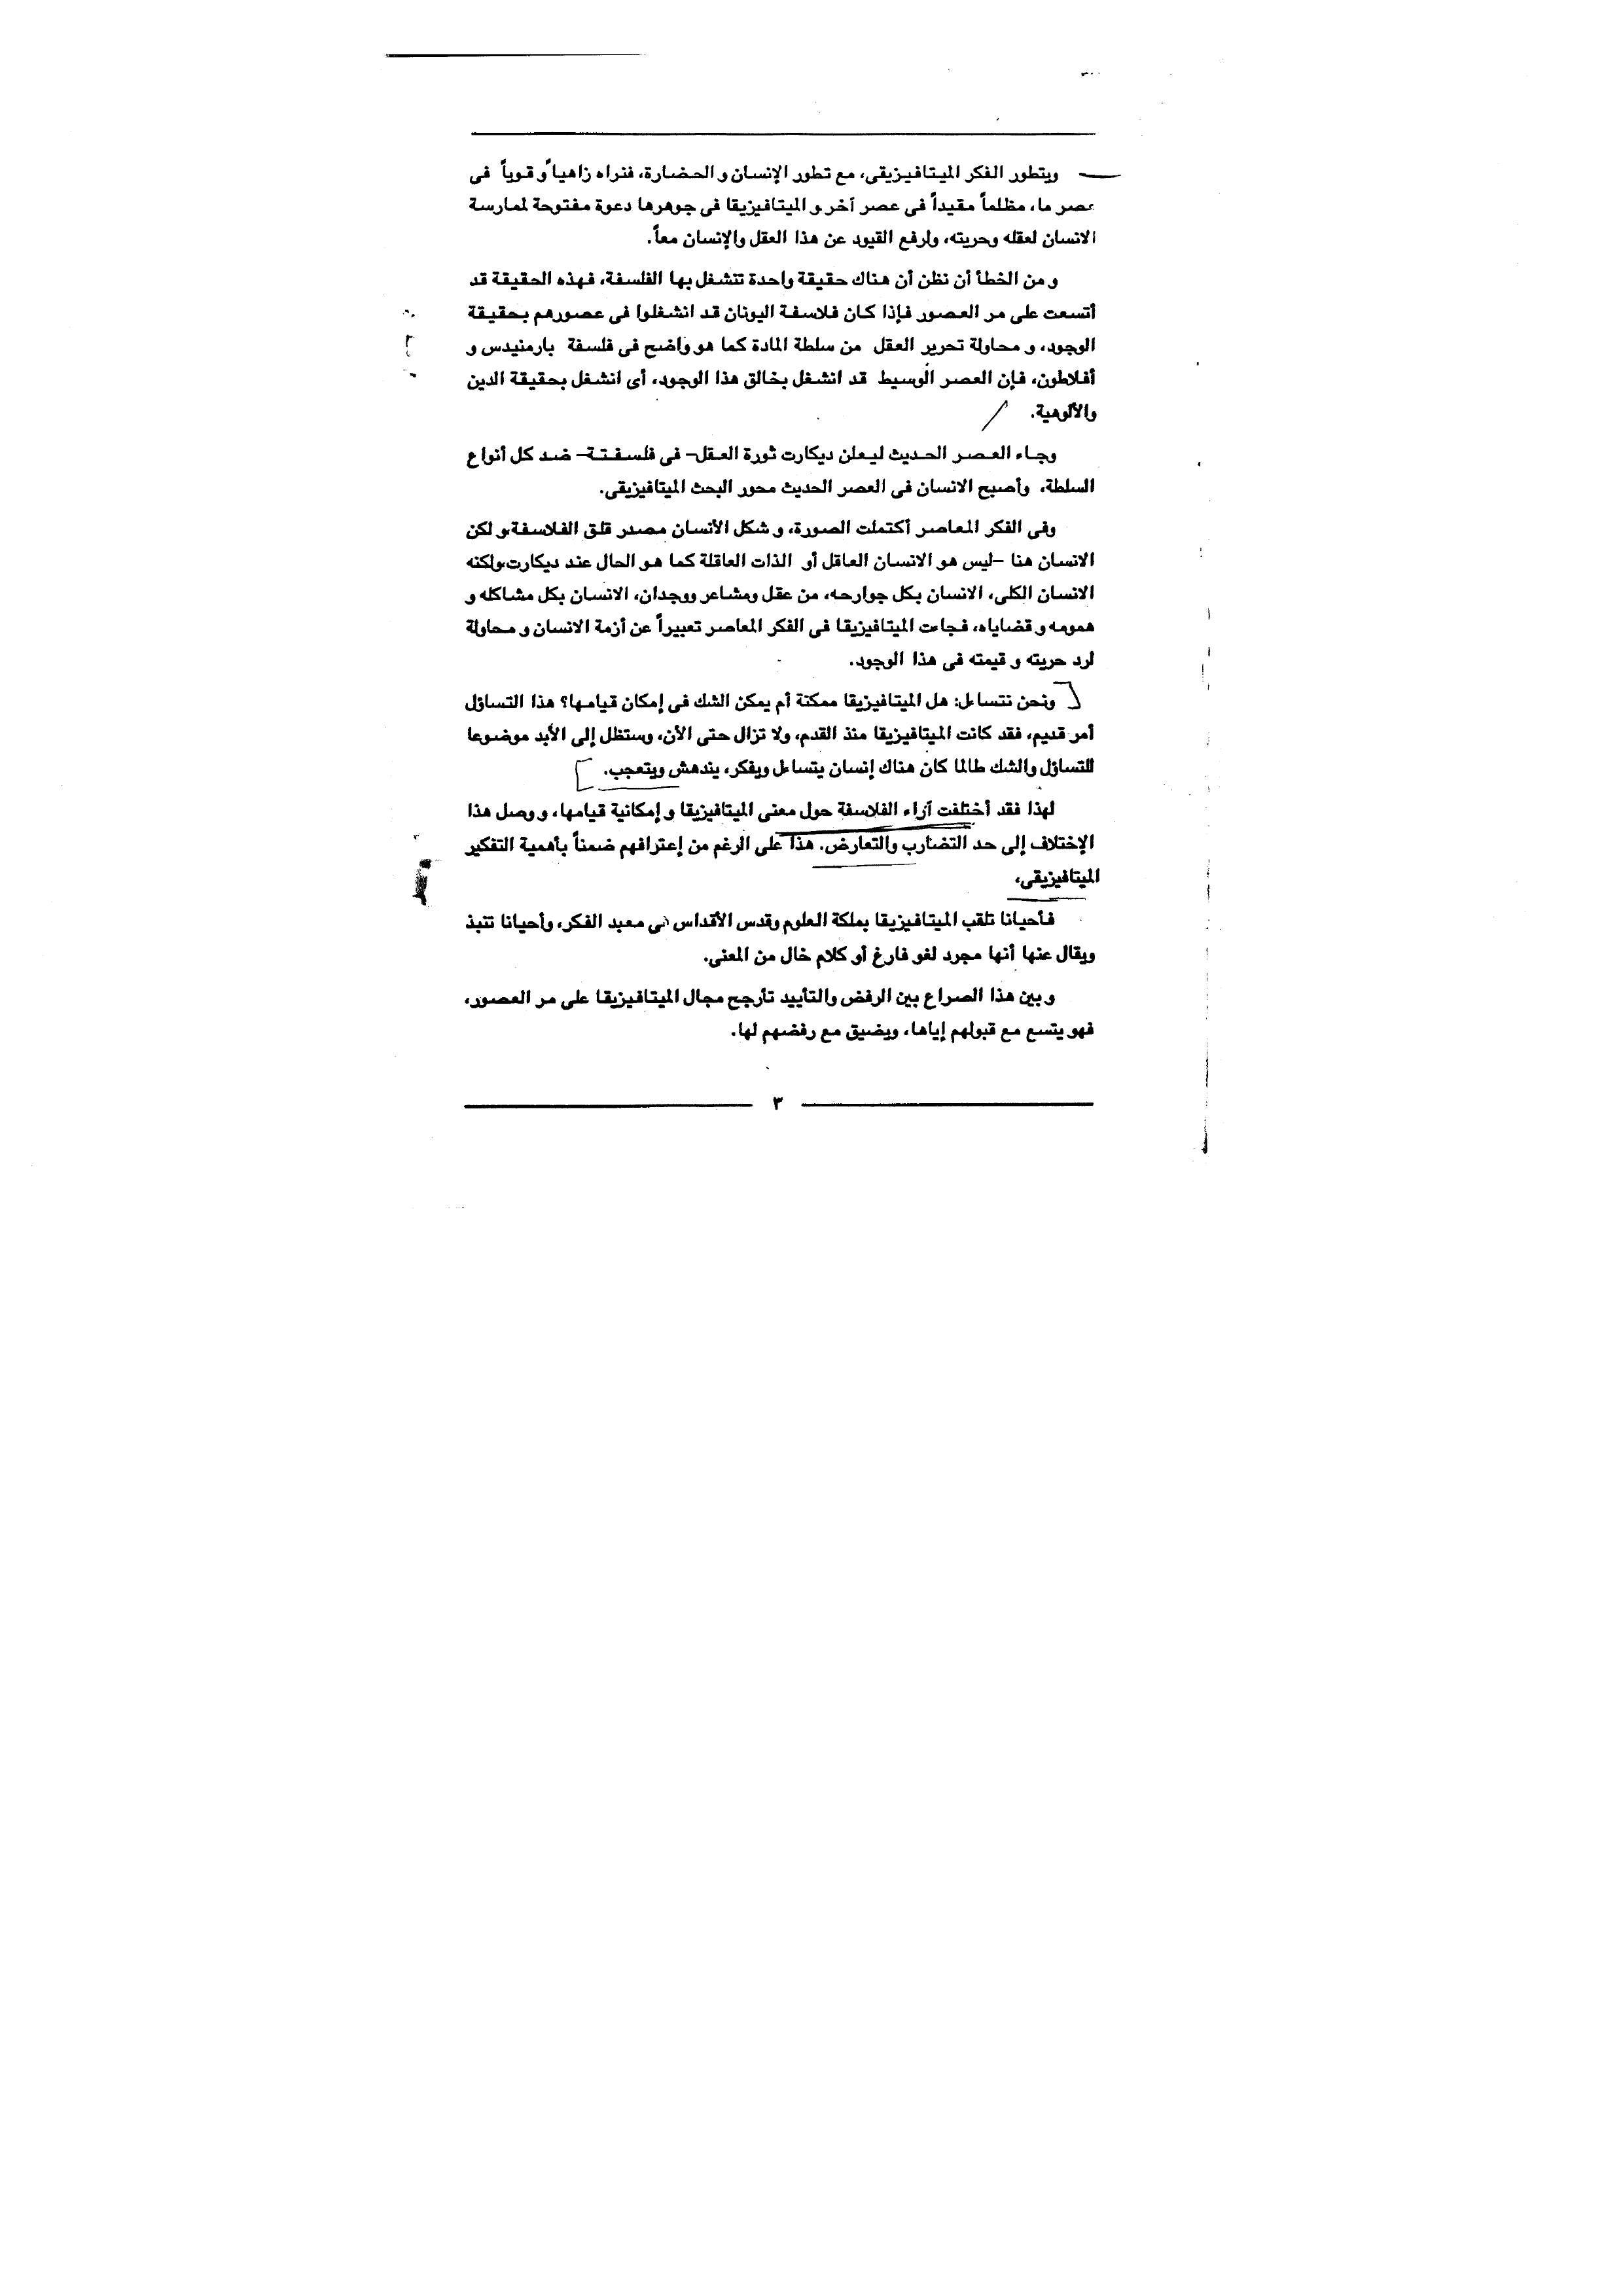 ويتطور الفكر الميتافيزيقى، مع تطور الإنسان و الحضارة، فنراه زاهياً و قوياً فى
عصر ما، مظلماً مقيداً فى عصر آخر و الميتافيزيقا فى جوهرها دعوة مفتوحة لممارسة
الانسان لعقله وحريته، ولرفع القيود عن هذا العقل والإنسان معاً.
و من الخطأ أن نظن أن هناك حقيقة واحدة تنشغل بها الفلسفة، فهذه الحقيقة قد
أتسعت على مر العصور فإذا كان فلاسفة اليونان قد انشغلوا فى عصورهم بحقيقة
الوجود، و محاولة تحرير العقل من سلطة المادة كما هو واضح فى فلسفة بارمنيدس و
أفلاطون، فإن العصر الوسيط قد انشغل بخالق هذا الوجود، أى انشغل بحقيقة الدين
والألوهية.
وجاء العصر الحديث ليعلن ديكارت ثورة العقل– فى فلسفتة– ضد كل أنواع
السلطة، وأصبح الانسان فى العصر الحديث محور البحث الميتافيزيقى.
وفى الفكر المعاصر أكتملت الصورة، و شكل الأنسان مصدر قلق الفلاسفة، و لكن
الانسان هنا –ليس هو الانسان العاقل أو الذات العاقلة كما هو الحال عند ديكارت، ولكنه
الانسان الكلى، الانسان بكل جوارحه، من عقل ومشاعر ووجدان، الانسان بكل مشاكله و
همومه و قضاياه، فجاءت الميتافيزيقا فى الفكر المعاصر تعبيراً عن أزمة الانسان و محاولة
لرد حريته و قيمته فى هذا الوجود.
ونحن نتساءل: هل الميتافيزيقا ممكنة أم يمكن الشك فى إمكان قيامها؟ هذا التساؤل
أمر قديم، فقد كانت الميتافيزيقا منذ القدم، ولا تزال حتى الأن، وستظل إلى الأبد موضوعا
للتساؤل والشك طالما كان هناك إنسان يتساءل ويفكر، يندهش ويتعجب.
لهذا فقد أختلفت آراء الفلاسفة حول معنى الميتافيزيقا و إمكانية قيامها، و وصل هذا
الإختلاف إلى حد التضارب والتعارض. هذا على الرغم من إعترافهم ضمناً بأهمية التفكير
الميتافيزيقى،
فأحيانا تلقب الميتافيزيقا بملكة العلوم وقدس الأقداس فى معبد الفكر، وأحيانا تنبذ
ويقال عنها أنها مجرد لغو فارغ أو كلام خال من المعنى.
و بين هذا الصراع بين الرفض والتأييد تأرجح مجال الميتافيزيقا على مر العصور،
فهو يتسع مع قبولهم إياها، ويضيق مع رفضهم لها.
٣